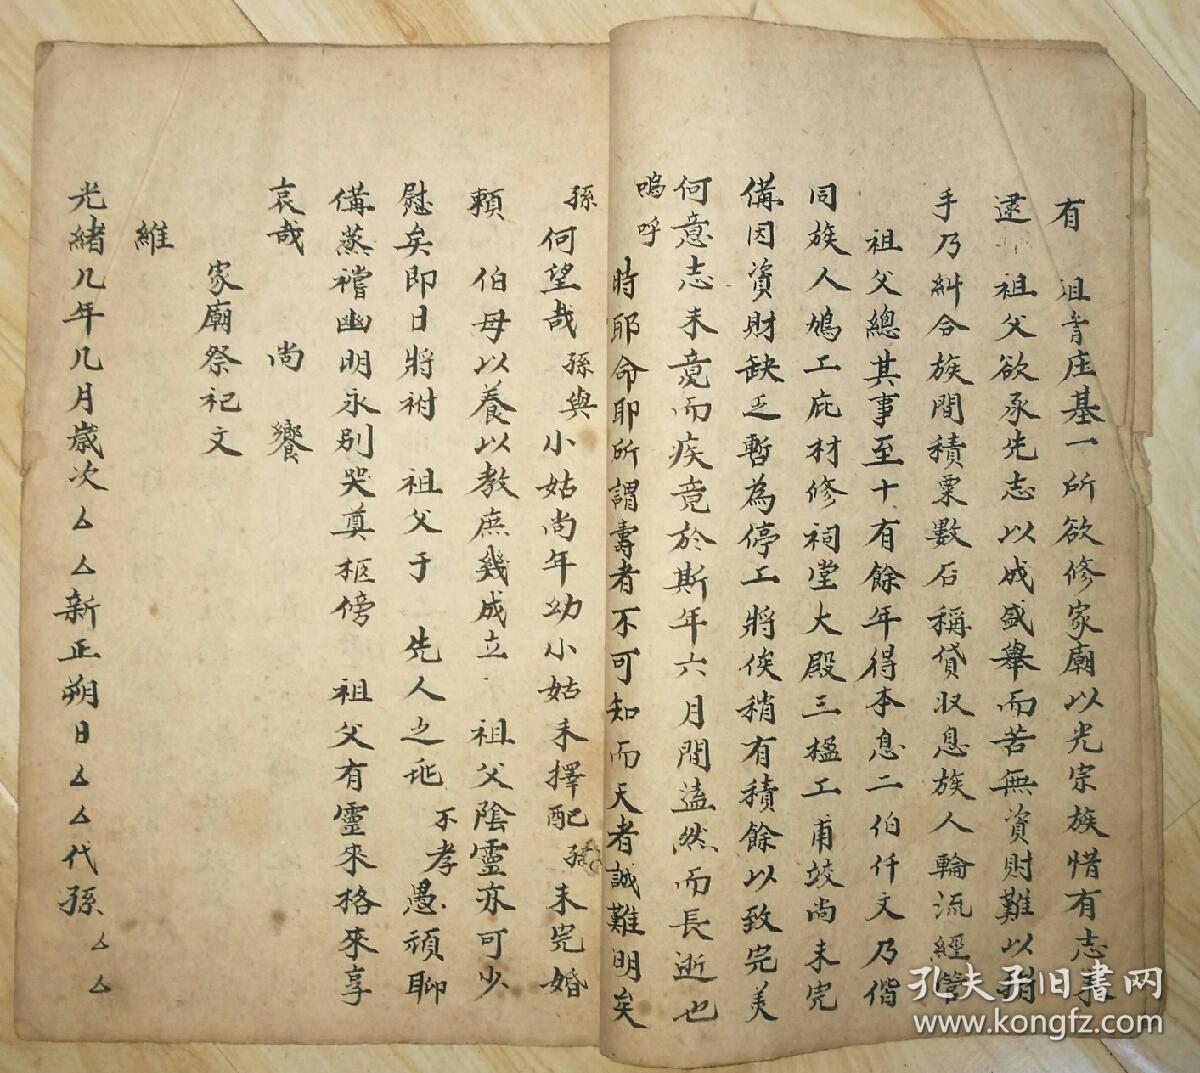 有 祖育庄基一所欲修家廟以光宗族惜有志未
逮 祖父欲承先志以成盛舉而苦無資財難以措
手乃糾合族間積粟數石稱貸収息族人輪流經管
祖父總其事至十有餘年得本息二伯仟文乃偕
同族人鳩工庇材修祠堂大殿三楹工甫竣尚未完
備因資財缺乏暫為停工將俟稍有積餘以致完美
何意志未竟而疾竟於斯年六月間溘然而長逝也
嗚呼 時耶命耶所謂壽者不可知而天者誠難明矣
孫何望哉 孫與小姑尚年幼小姑未擇配孫未完婚
賴 伯母以養以教庶幾成立 祖父陰靈亦可少
慰矣即日將祔 祖父于 先人之兆 不孝愚頑聊
備蒸嚐幽明永别哭奠柩傍 祖父有靈來格來享
哀哉 尚 饗
家廟祭祀文
維
光緒几年几月歲次△△新正朔日△△代孫△△
孔夫子旧書网
www.kongfz.com